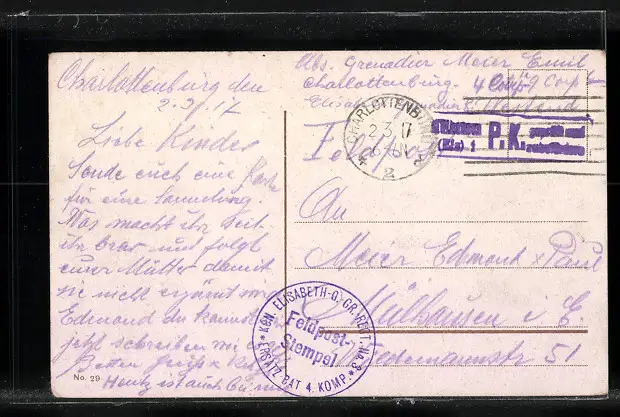 Charlottenburg den
2.3.17
Liebe Kinder
Sende euch eine Karte
für eine Sammlung.
Was macht ihr Seit
ihr brav und folgt
eurer Mutter damit
sie nicht
Edmond du kannst
jetzt schreiben mir
Besten Gruß
ist auch bei mir
No. 29
Abs. Grenadier Meier Emil
Charlottenburg. 4 Comp.
Elisabeth Westend
CHARLOTTENBURG
2.3.17
2
Mülhausen
(Els) 1
P.K.
geprüft und
An
Meier Edmond & Paul
Mülhausen i E
Friedemannstr 51
KGN. ELISABETH-G.-GR.-REGT. No. 3
ERSATZ BAT 4. KOMP.
Feldpost-
Stempel